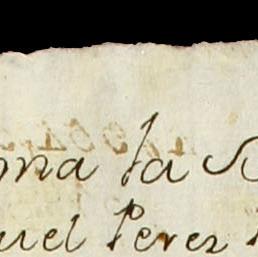 ma la
uel Perez